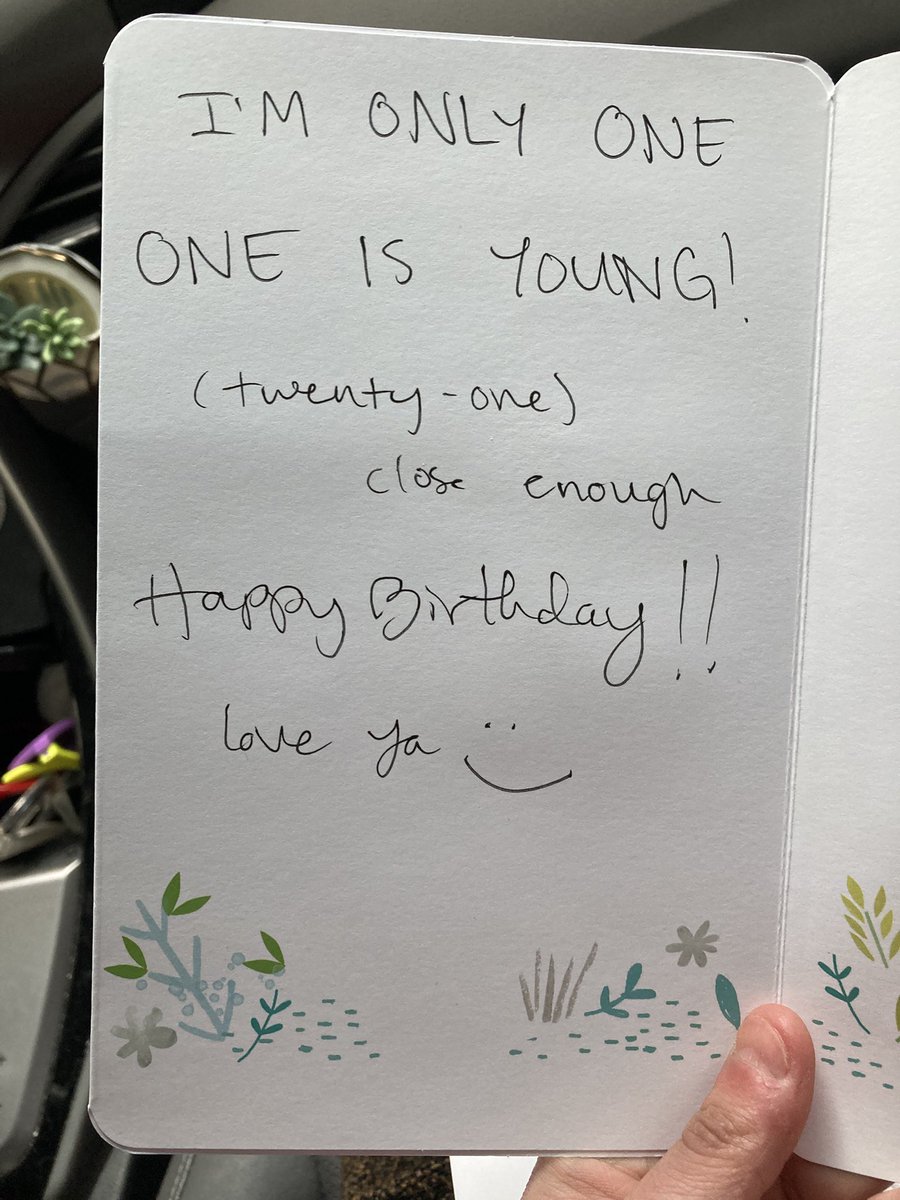 I'M ONLY ONE
ONE IS YOUNG!
(twenty-one)
close enough
Happy Birthday!!
love ya